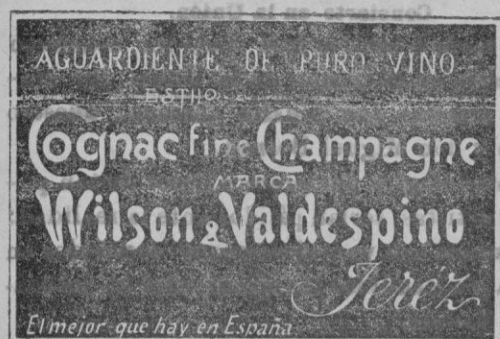 AGUARDIENTE DE PURO VINO
ESTILO
Cognac fine Champagne
MARCA
Wilson & Valdespino
Jeréz
El mejor que hay en España